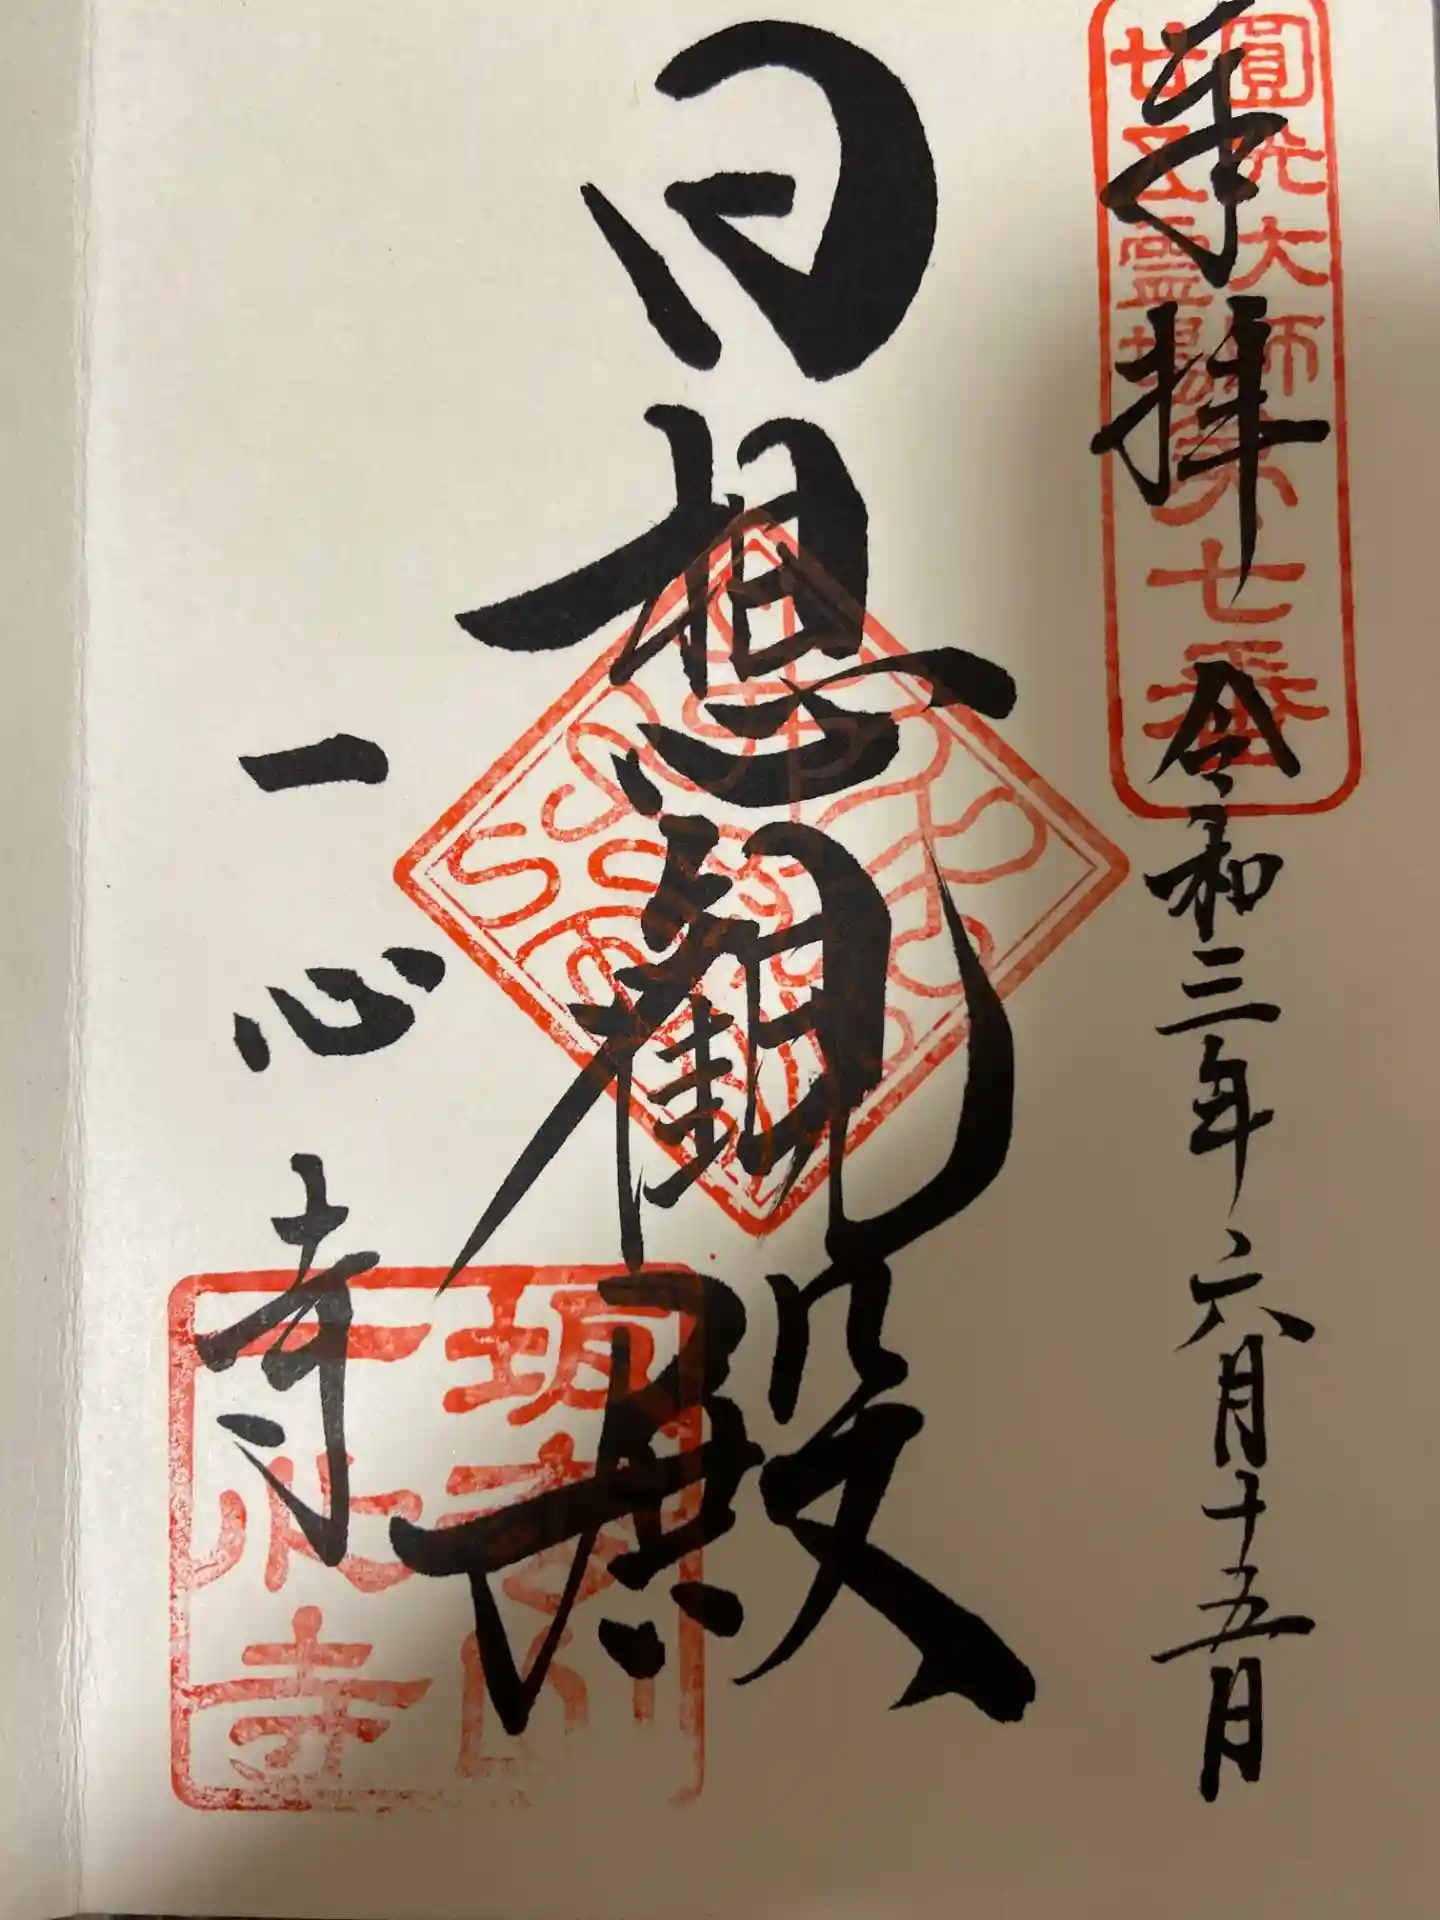 圓光大師
廿五霊場
第七番
奉拝 令和三年六月十五日
日想観殿
一心寺
坂松山
一心寺